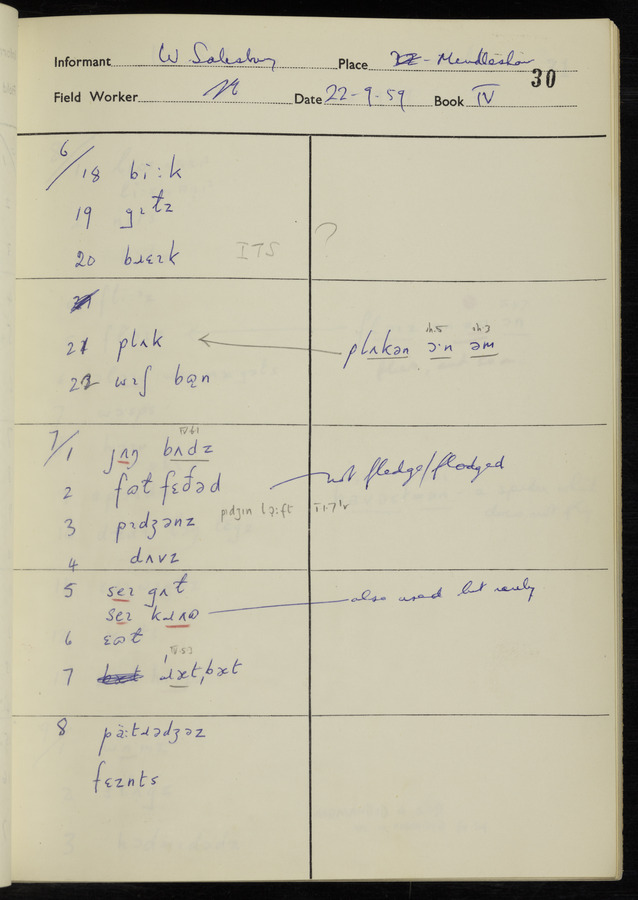 Informant W Salesbury Place Mendlesham
30
Field Worker Date 22-9-59 Book IV
6/18 bi:k
19 gɪtz
20 bɹɛɪk ITS ?
21 plʌk plʌkən ɔ:n əm
22 wɪʃ bɒn
7/1 jʌŋ bʌdz
2 fʊt fɛðəd not fledge/flodged
3 pɪdʒənz pɪdʒɪn
4 dʌvz
5 sɛɪ gʌt
sɛɪ kɹʌʊ also used but rarely
6 ɛʊt
7 ɹæt,bæt
8 pä:tɹədʒəz
fɛznts